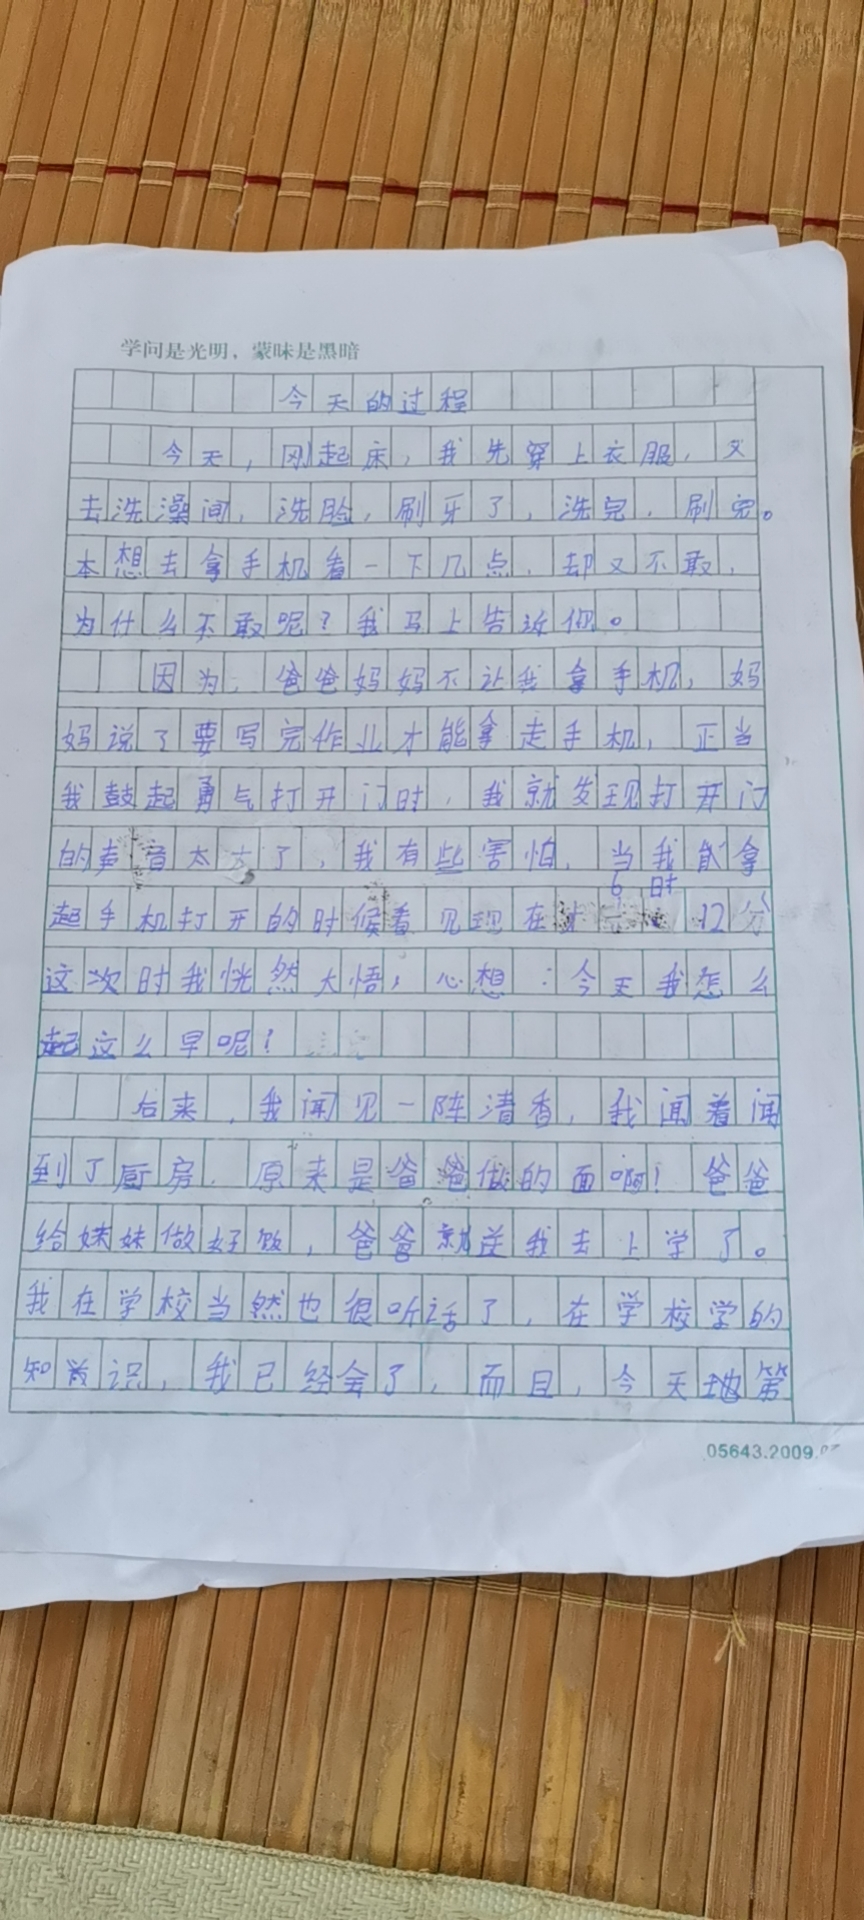 学问是光明，蒙昧是黑暗
今天的过程
今天，刚起床，我先穿上衣服，又
去洗澡间，洗脸，刷牙了，洗完，刷完。
本想去拿手机看一下几点，却又不敢，
为什么不敢呢？我马上告诉你。
因为，爸爸妈妈不让我拿手机，妈
妈说了要写完作业才能拿走手机，正当
我鼓起勇气打开门时，我就发现打开门
的声音太大了，我有些害怕，当我能拿
起手机打开的时候看见现在 6时12分
这次时我恍然大悟，心想：今天我怎么
起这么早呢！
后来，我闻见一阵清香，我闻着闻
到了厨房，原来是爸爸做的面啊！爸爸
给妹妹做好饭，爸爸就送我去上学了。
我在学校当然也很听话了，在学校学的
知识，我已经会了，而且，今天地第
05643.2009.